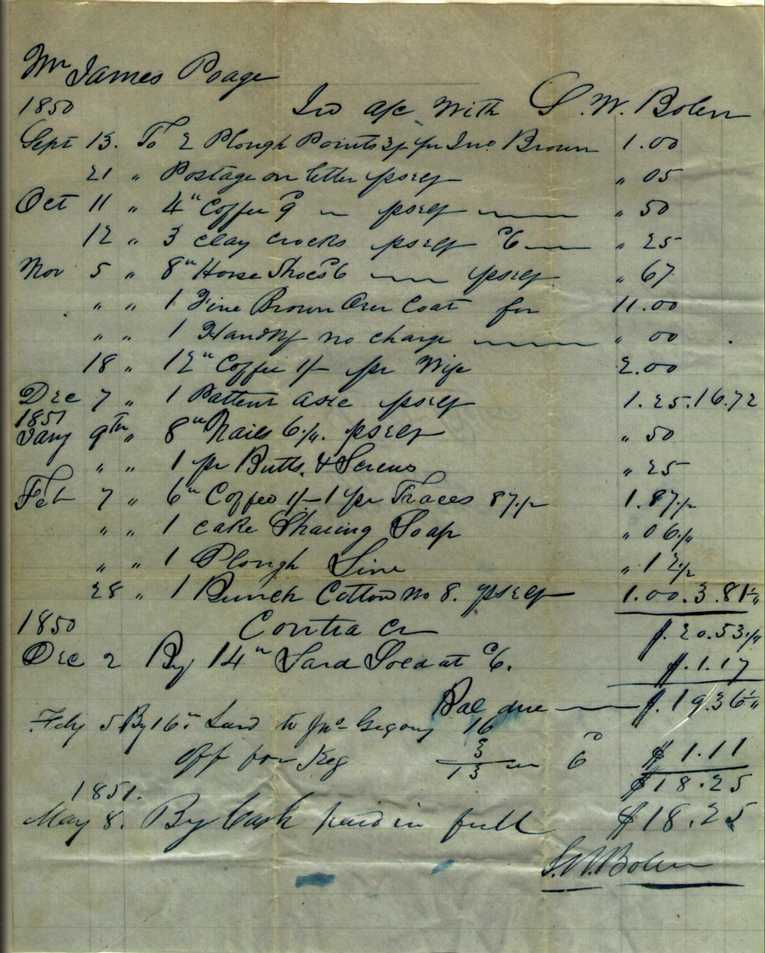 Mr James Poage
1850 In a/c With S. W. Bolen
Sept 13. To 2 Plough Points 3/ pr Jno. Brown 1.00
21 " Postage on letter pself " 05
Oct 11 " 4" Coffee 9 pself " 50
12 " 3 clay crocks pself 6 " 25
Nov 5 " 8" Horse Shoes 6 pself " 67
" " 1 Fine Brown Over Coat for 11.00
" " 1 Handkf no charge " 00
18 " 12" Coffee 1/- pr Wife 2.00
Dec 7 " 1 Pattent axe pself 1.25.16.72
1851
Jany 9th " 8" Nails 6¼. pself " 50
" " 1 pr Butts & Screws " 25
Feb 7 " 6" Coffee 1/- 1 pr Traces 87½ 1.87½
" " 1 cake Shaving Soap " 06¼
" " 1 Plough Line " 12½
28 " 1 Bunch Cotton no 8. pself 1.00.3.81¼
1850 Contra Cr $.20.53¼
Dec 2 By 14" Lard Sold at 6. $.1.17
Bal due $.19.36¼
Feby 5 By 16" Lard to Jno Gegory 16
off for Keg 3 / 13 6 $1.11
$18.25
1851.
May 8. By Cash paid in full $18.25
S. W. Bolen